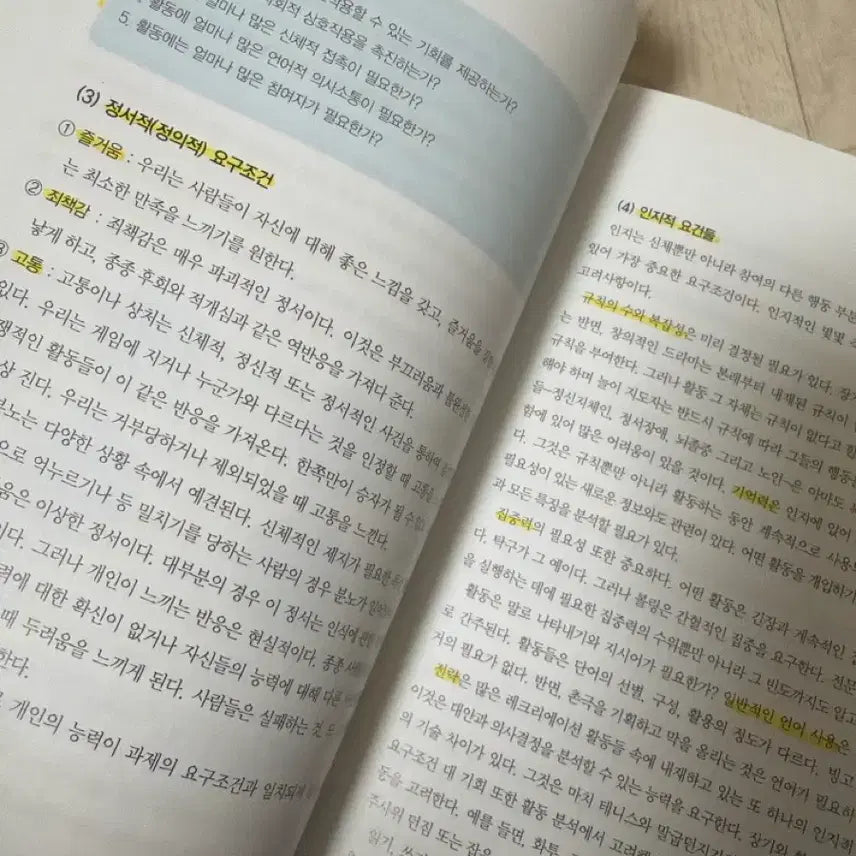 적용할 수 있는 기회를 제공하는가?
회적 상호작용을 촉진하는가?
활동에 얼마나 많은 신체적 접촉이 필요한가?
5. 활동에는 얼마나 많은 언어적 의사소통이 필요한가?
얼마나 많은 참여자가 필요한가?
(3) 정서적(정의적) 요구조건
① 즐거움 : 우리는 사람들이 자신에 대해 좋은 느낌을 갖고, 즐거움을
는 최소한 만족을 느끼기를 원한다.
② 죄책감 : 죄책감은 매우 파괴적인 정서이다. 이것은 부끄러움과
낳게 하고, 종종 후회와 적개심과 같은 역반응을 가져다 준다.
③ 고통 : 고통이나 상처는 신체적, 정신적 또는 정서적인 사건을 통하여
있다. 우리는 게임에 지거나 누군가와 다르다는 것을 인정할 때 고통을
쟁적인 활동들이 이 같은 반응을 가져온다. 한쪽만이 승자가 될 수
상 진다. 우리는 거부당하거나 제외되었을 때 고통을 느낀다.
분노는 다양한 상황 속에서 예견된다. 신체적인 제지가 필요한
으로 억누르기나 등 밀치기를 당하는 사람의 경우 분노가
움은 이상한 정서이다. 대부분의 경우 이 정서는 인식에
이다. 그러나 개인이 느끼는 반응은 현실적이다. 종종
력에 대한 확신이 없거나 자신들의 능력에 대해 다른
때 두려움을 느끼게 된다. 사람들은 실패하는 것
한다.
개인의 능력이 과제의 요구조건과 일치되게
(4) 인지적 요건들
인지는 신체뿐만 아니라 참여의 다른 행동 부분
있어 가장 중요한 요구조건이다. 인지적인 몇몇
고려사항이다.
규칙의 수와 복잡성은 미리 결정될 필요가 있다.
는 반면, 창의적인 드라마는 본래부터 내재된 규칙이
규칙을 부여한다. 그러나 활동 그 자체는 규칙이 없다고
해야 하며 놀이 지도자는 반드시 규칙에 따라 그들의 행동
들-정신지체인, 정서장애, 뇌졸중 그리고 노인-은 아마도
함에 있어 많은 어려움이 있을 것이다. 기억력은 인지에 있어
다. 그것은 규칙뿐만 아니라 활동하는 동안 계속적으로 사용
필요성이 있는 새로운 정보와도 관련이 있다. 어떤 활동을 개입하기
과 모든 특징을 분석할 필요가 있다.
집중력의 필요성 또한 중요하다. 어떤 활동은 긴장과 계속적인
다. 탁구가 그 예이다. 그러나 볼링은 간헐적인 집중을 요구한다. 전문
을 실행하는 데에 필요한 집중력의 수위뿐만 아니라 그 빈도까지도 알고
활동은 말로 나타내기와 지시어가 필요한가? 일반적인 언어 사용은
로 간주된다. 활동들은 단어의 선별, 구성, 활용의 정도가 다르다. 빙고
거의 필요가 없다. 반면, 촌극을 기획하고 막을 올리는 것은 언어가 필요하
전략은 많은 레크리에이션 활동들 속에 내재하고 있는 또 하나의 인지적
이것은 대안과 의사결정을 분석할 수 있는 능력을 요구한다.
의 기술 차이가 있다. 그것은 마치 테니스와
요구조건 대 기회 또한 활동 분석에서 고려해
동을 고려한다. 예를 들면, 화투
주사위 던짐 또는 잡은
읽기,